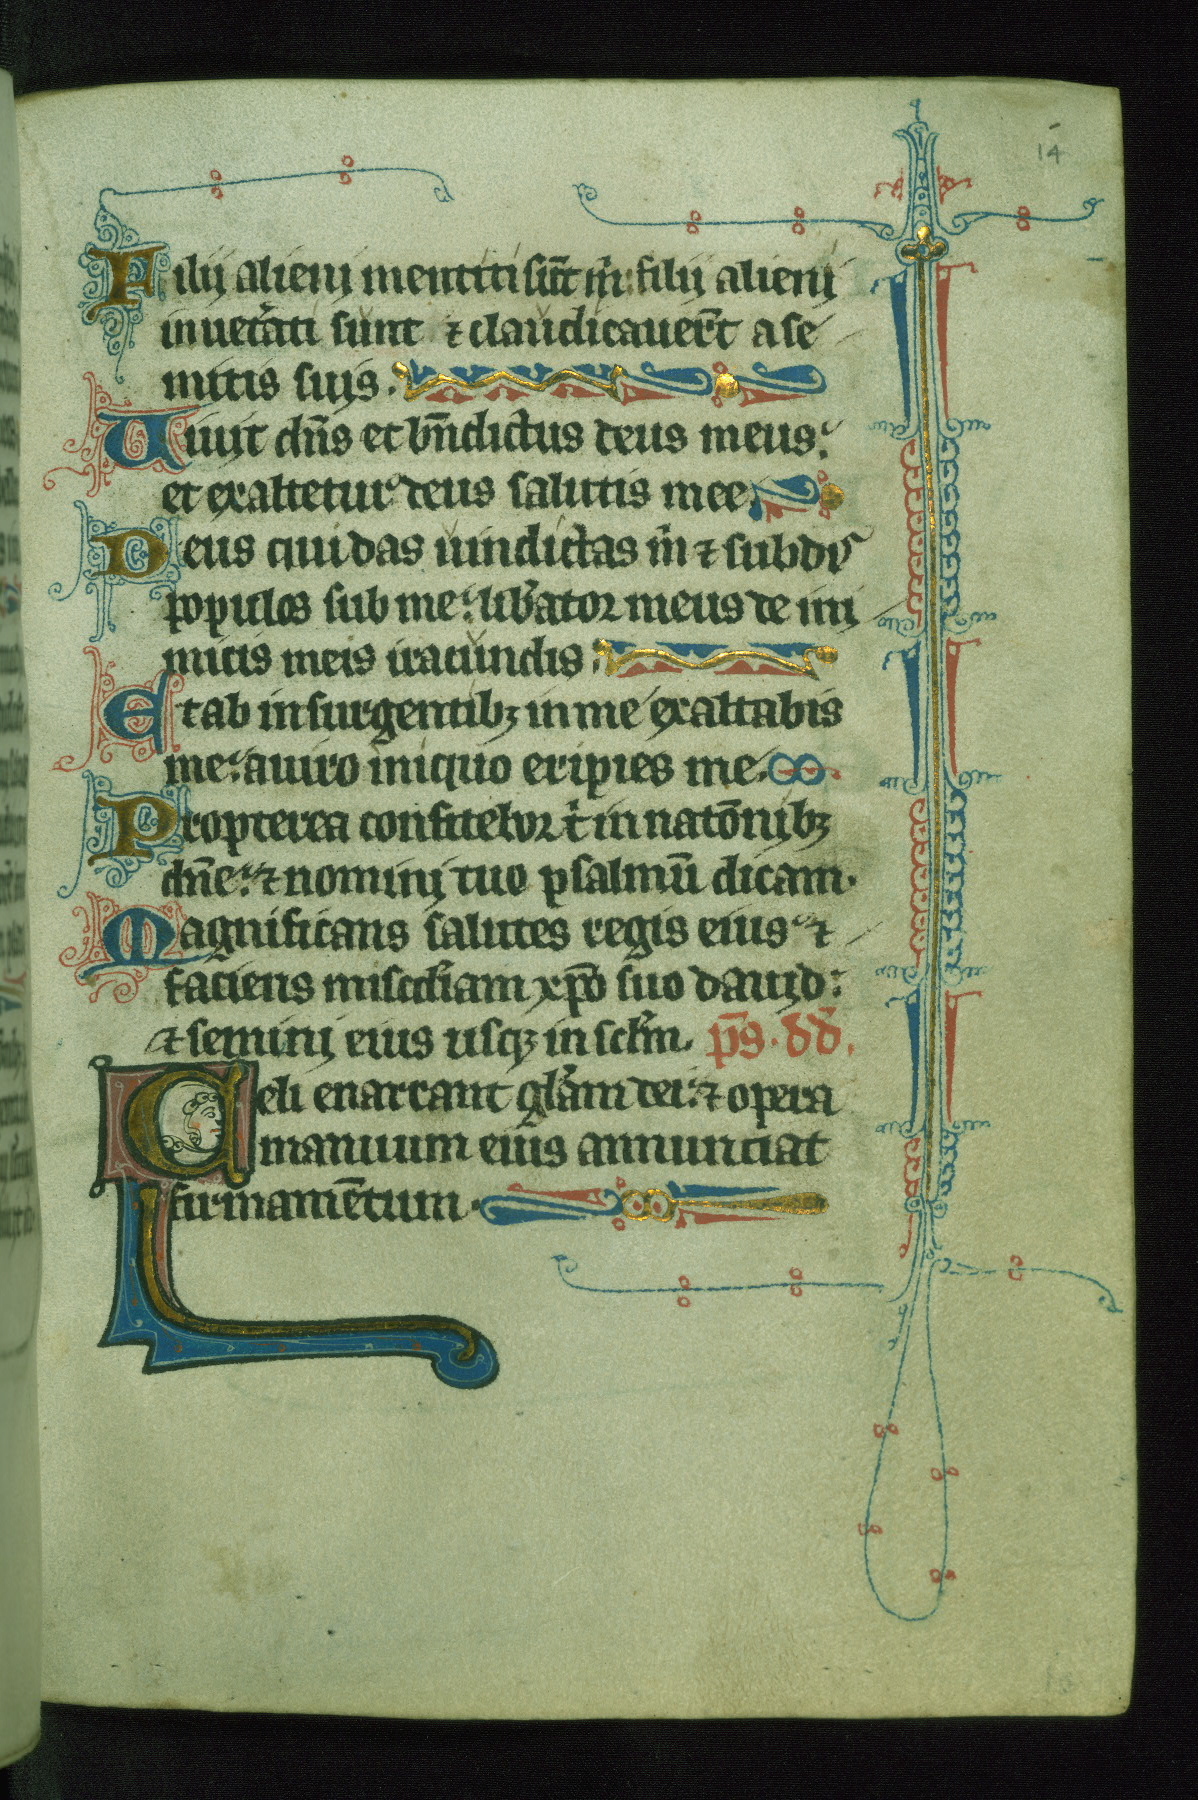 14
Filij alienj mentiti sūt m̄ : filij alienj
inuet̾ati sunt ⁊ claudicauer̄t a se
mitis suis.
Uiuit dn̄s et bn̄dictus deus meus :
et exaltetur deus salutis mee.
Deus qui das uindictas m̄ ⁊ subdis
populos sub me : lib̾ator meus de ini
micis meis iracundis.
Et ab insurgentibꝫ in me exaltabis
me : a uiro iniquo eripies me.
Propterea confitebor t̄ in natōnibꝫ
dn̄e : ⁊ nominj tuo psalmū dicam.
Magnificans salutes regis eius : ⁊
faciens misc̄diam xp̄o suo dauid :
⁊ seminj eius usqꝫ in sc̄lm. p̄s. dd̄.
Celi enarrant gl̄am dei : ⁊ opera
manuum eius annunciat
firmamētum.